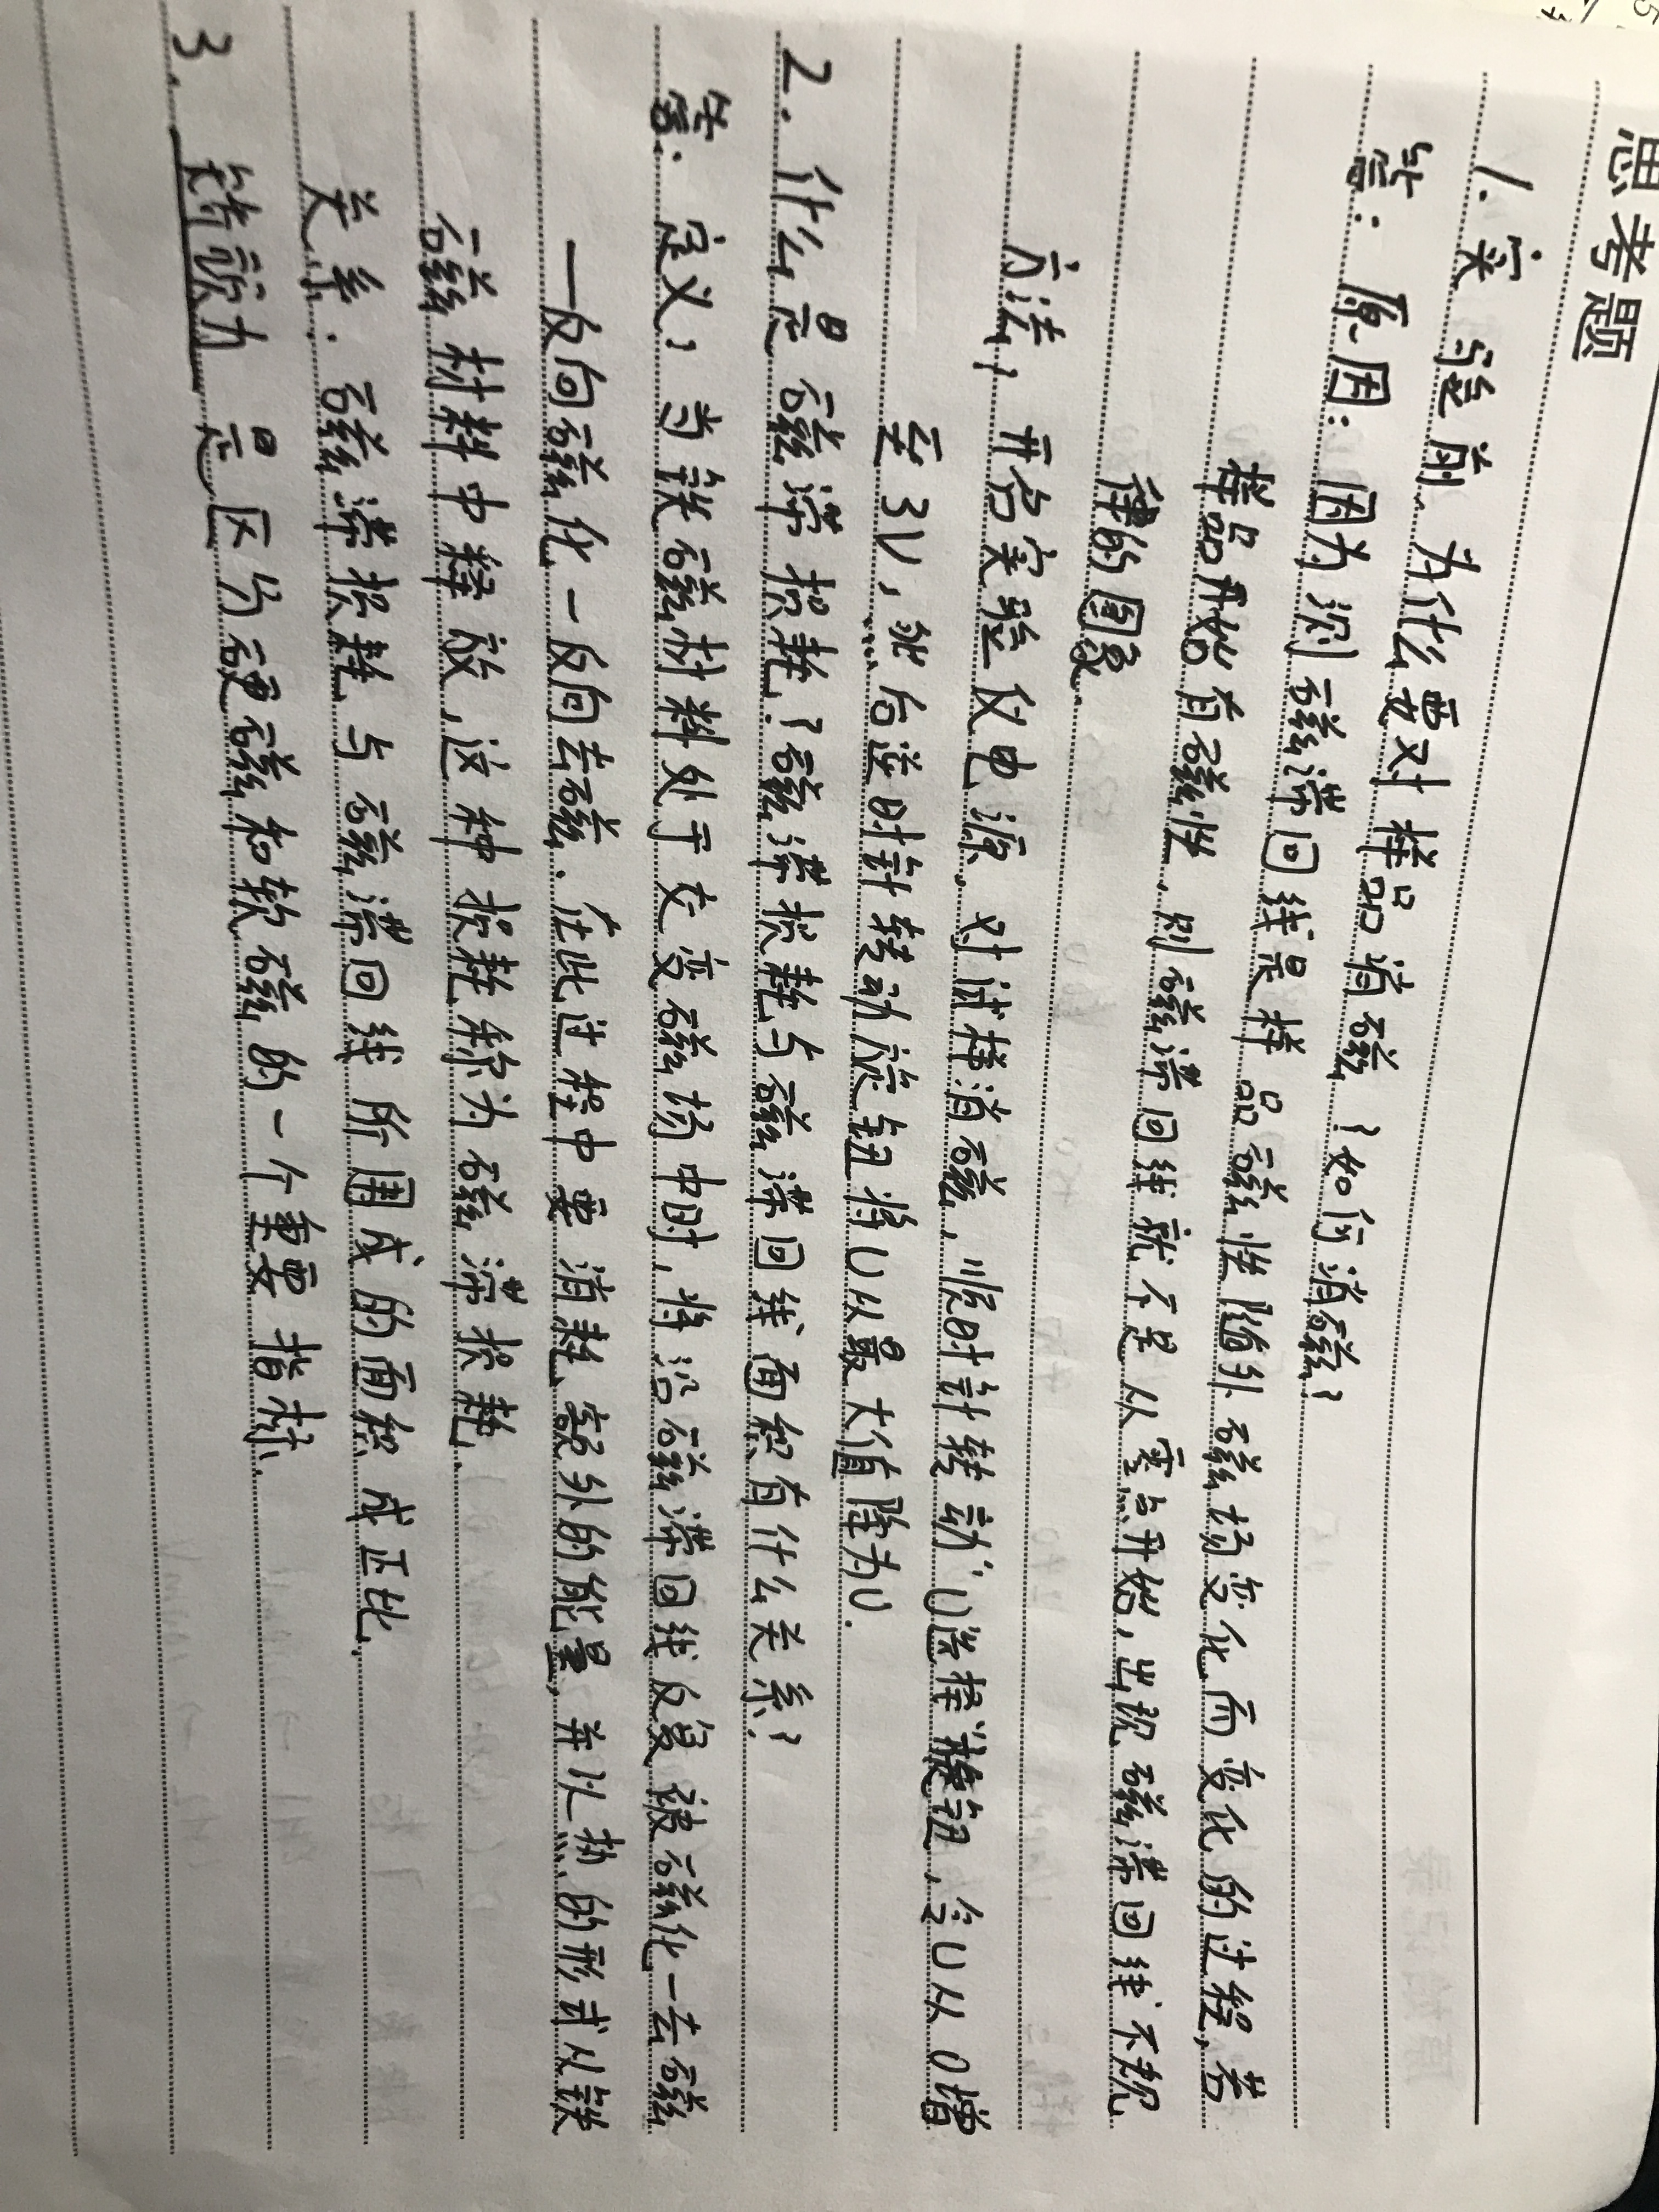 思考题
1. 实验前为什么要对样品消磁？如何消磁？
答：原因：因为测磁滞回线是样品磁性随外磁场变化而变化的过程，若
样品开始有磁性，则磁滞回线就不是从零点开始，出现磁滞回线不规
律的图象.
方法：开启实验仪电源，对试样消磁，顺时针转动"U选择"旋钮，令U从0增
至3V，然后逆时针转动旋钮将U从最大值降为0.
2. 什么是磁滞损耗？磁滞损耗与磁滞回线面积有什么关系？
答：定义：当铁磁材料处于交变磁场中时，将沿磁滞回线反复被磁化一去磁
一反向磁化一反向去磁.在此过程中要消耗额外的能量，并以热的形式从铁
磁材料中释放，这种损耗称为磁滞损耗.
关系：磁滞损耗与磁滞回线所围成的面积成正比.
3. 矫顽力是区分硬磁和软磁的一个重要指标.